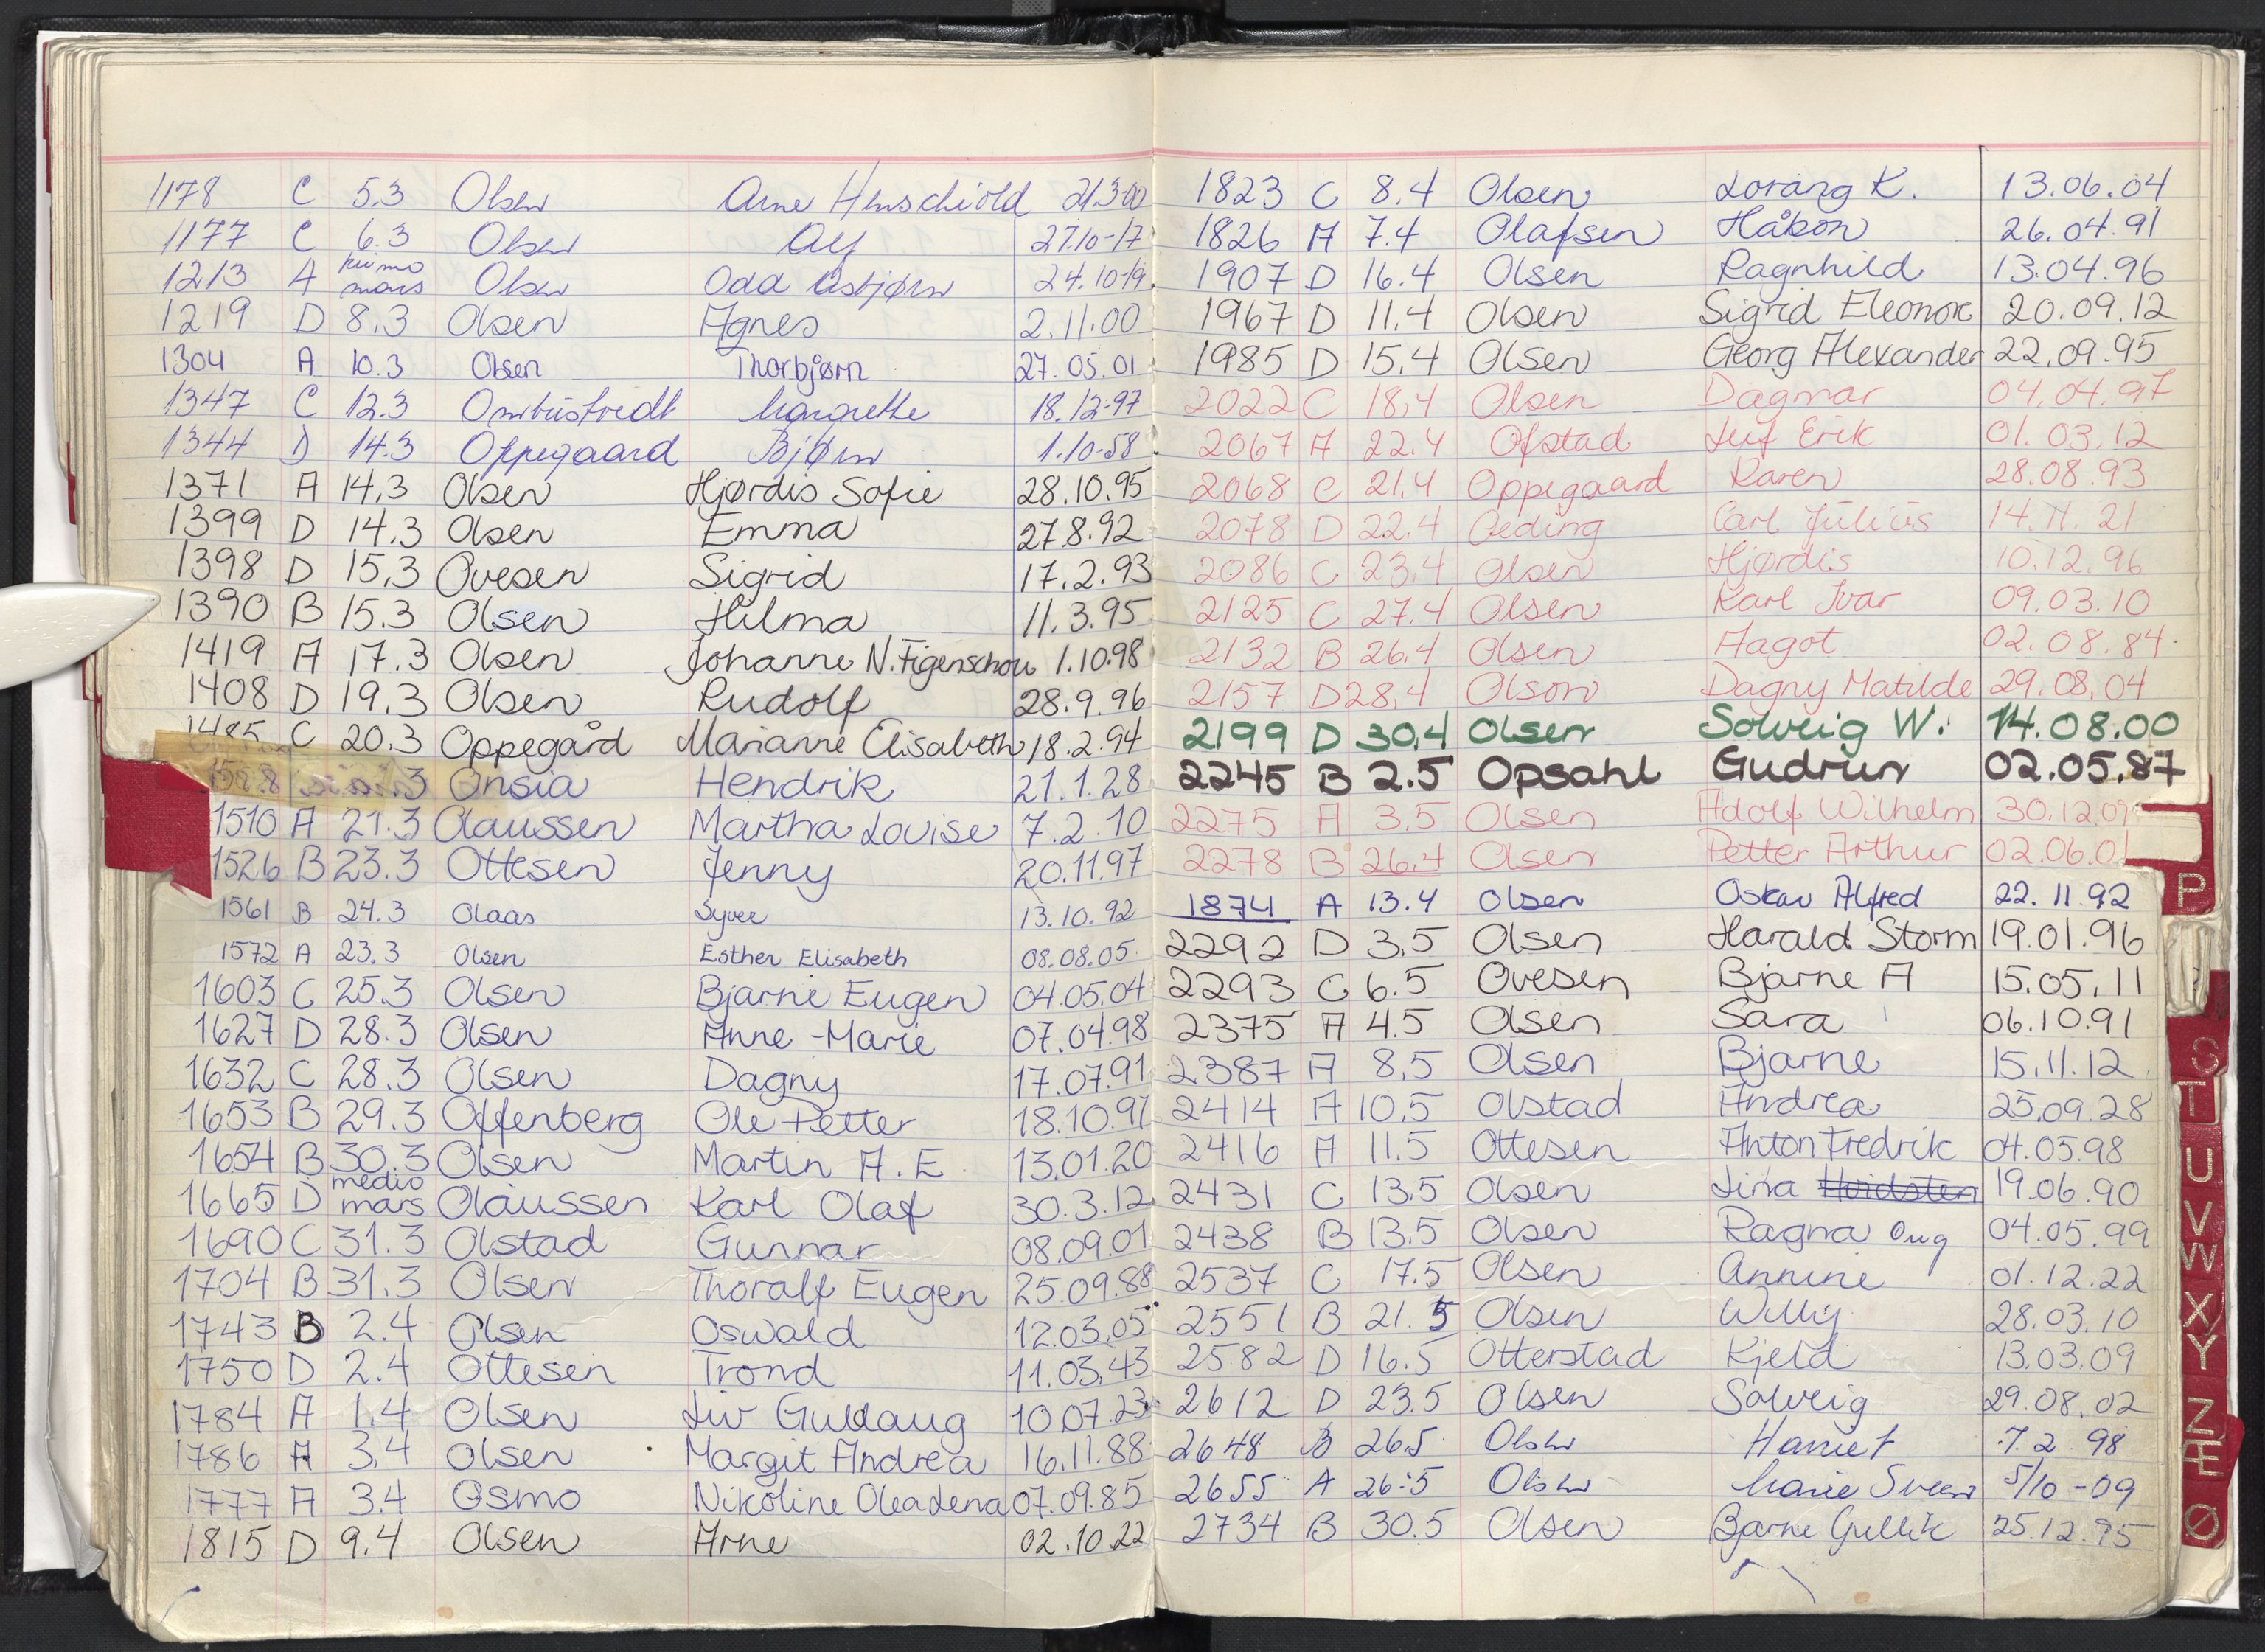 1178 C 5.3 Olsen Arne Henschiold 21.3-00
1177 C 6.3 Olsen Alf 27.10-17
1213 A primo mars Olsen Odd Asbjørn 24.10-19
1219 D 8.3 Olsen Agnes 2.11.00
1304 A 10.3 Olsen Thorbjørn 27.05.01
1347 C 12.3 Margrethe 18.12-97
1344 D 14.3 Oppegaard Bjørn 1.10-58
1371 A 14.3 Olsen Hjørdis Sofie 28.10.95
1399 D 14.3 Olsen Emma 27.8.92
1398 D 15.3 Ovesen Sigrid 17.2.93
1390 B 15.3 Olsen Hilma 11.3.95
1419 A 17.3 Olsen Johanne N. Figenschou 1.10.98
1408 D 19.3 Olsen Rudolf 28.9.96
1485 C 20.3 Oppegård Marianne Elisabeth 18.2.94
.3 Onsia Hendrik 21.1.28
1510 A 21.3 Olaussen Martha Lovise 7.2.10
1526 B 23.3 Ottesen Jenny 20.11.97
1561 B 24.3 Olaas Syver 13.10.92
1572 A 23.3 Olsen Esther Elisabeth 08.08.05
1603 C 25.3 Olsen Bjarne Eugen 04.05.04
1627 D 28.3 Olsen Anne-Marie 07.04.98
1632 C 28.3 Olsen Dagny 17.07.91
1653 B 29.3 Offenberg Ole Petter 18.10.97
1654 B 30.3 Olsen Martin A.E. 13.01.20
1665 D medio mars Olaussen Karl Olaf 30.3.12
1690 C 31.3 Olstad Gunnar 08.09.01
1704 B 31.3 Olsen Thoralf Eugen 25.09.88
1743 B 2.4 Olsen Oswald 12.03.05
1750 D 2.4 Ottesen Trond 11.03.43
1784 A 1.4 Olsen Liv Gudlaug 10.07.23
1786 A 3.4 Olsen Margit Andrea 16.11.88
1777 A 3.4 Osmo Nikoline Olea Lena 07.09.85
1815 D 9.4 Olsen Arne 02.10.22
1823 C 8.4 Olsen Lorang K. 13.06.04
1826 A 7.4 Olafsen Håkon 26.04.91
1907 D 16.4 Olsen Ragnhild 13.04.96
1967 D 11.4 Olsen Sigrid Eleonore 20.09.12
1985 D 15.4 Olsen Georg Alexander 22.09.95
2022 C 18.4 Olsen Dagmar 04.04.97
2067 A 22.4 Ofstad Leif Erik 01.03.12
2068 C 21.4 Oppegaard Karen 28.08.93
2078 D 22.4 Oeding Carl Julius 14.11.21
2086 C 23.4 Olsen Hjørdis 10.12.96
2125 C 27.4 Olsen Karl Ivar 09.03.10
2132 B 26.4 Olsen Aagot 02.08.84
2157 D 28.4 Olson Dagny Matilde 29.08.04
2199 D 30.4 Olsen Solveig W. 14.08.00
2245 B 2.5 Opsahl Gudrun 02.05.87
2275 A 3.5 Olsen Adolf Wilhelm 30.12.09
2278 B 26.4 Olsen Petter Arthur 02.06.01
1874 A 13.4 Olsen Oskar Alfred 22.11.92
2292 D 3.5 Olsen Harald Storm 19.01.96
2293 C 6.5 Ovesen Bjarne A 15.05.11
2375 A 4.5 Olsen Sara 06.10.91
2387 A 8.5 Olsen Bjarne 15.11.12
2414 A 10.5 Olstad Andrea 25.09.28
2416 A 11.5 Ottesen Anton Fredrik 04.05.98
2431 C 13.5 Olsen Lina 19.06.90
2438 B 13.5 Olsen Ragna Ong 04.05.99
2537 C 17.5 Olsen Annine 01.12.22
2551 B 21.5 Olsen Willy 28.03.10
2582 D 16.5 Otterstad Kjeld 13.03.09
2612 D 23.5 Olsen Solveig 29.08.02
2648 B 26.5 Olsen Harriet 7.2 98
2655 A 26.5 Olsen Marie 5/10-09
2734 B 30.5 Olsen Bjarne Gullik 25.12.95
P
S
T
U
V
W
X
Y
Z
Æ
Ø